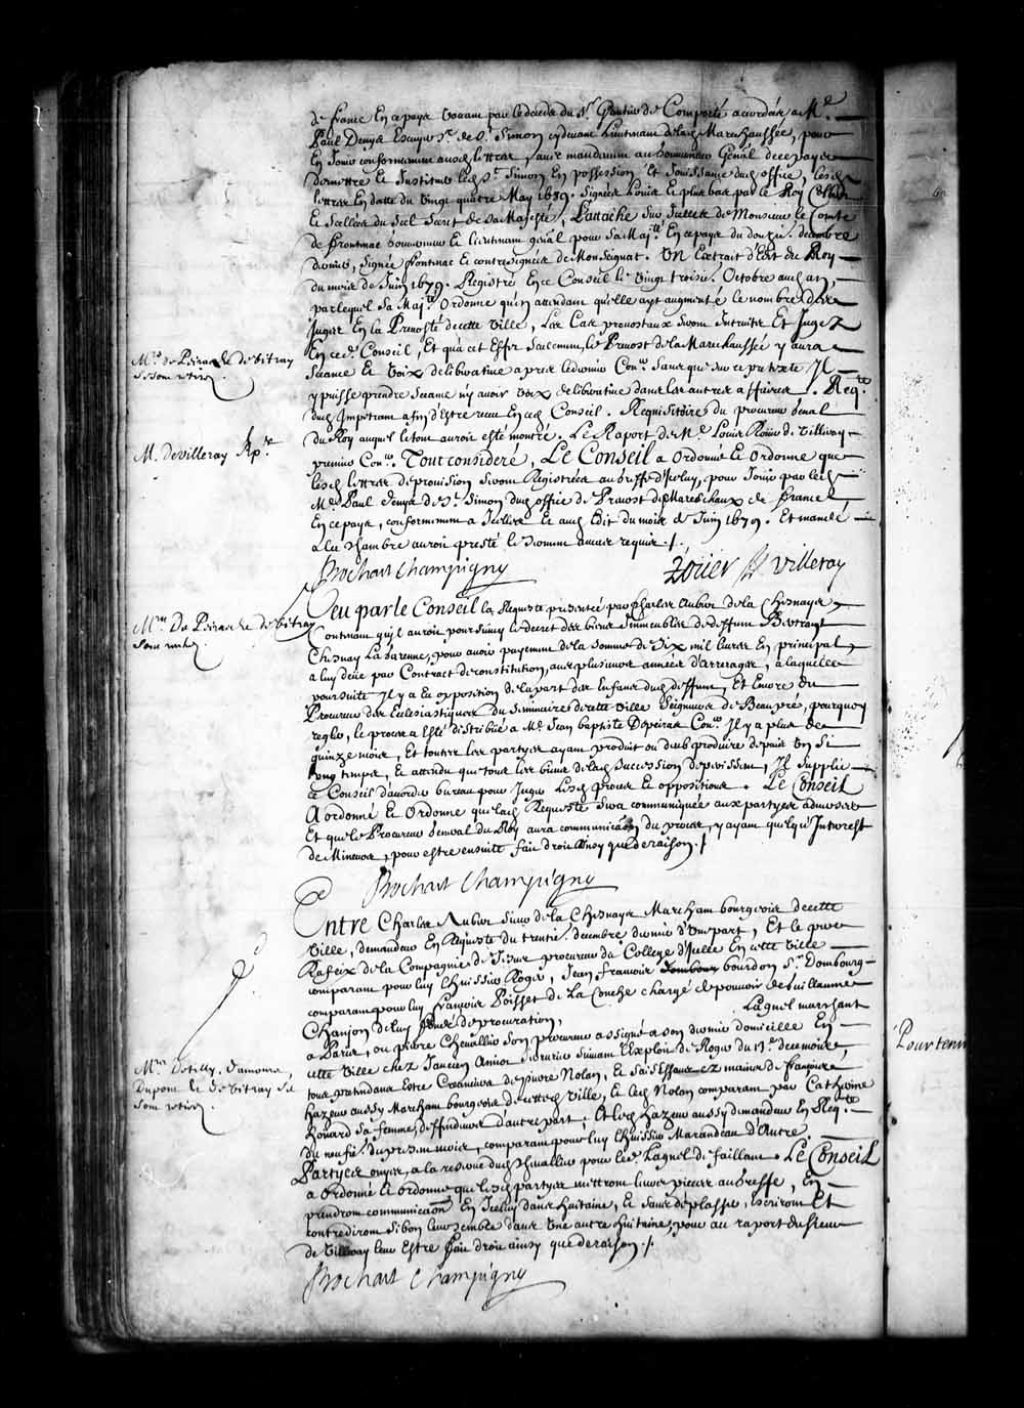 de france En ce paya vacant par le deceds du Sr. Gautier de Comporté accordée a Me.
Paul Denys Escuyer Sr. de St. Simon cydevant Lieutenant de lad. Mareschaussée, pour
En Jouir conformement ausd. lettres, avec mandement au Gouverneur Genal. de ce paya
de mettre Et Instituer led. Sr. Simon En possession Et Jouissance dud. office, lesd.
lettres En datte du vingt quatre May 1689. signées Louis Et plus bas par le Roy Colbert
Et scellées du Scel Secret de sa Majesté, L'attache sur Icelles de Monsieur le Comte
de frontenac Gouverneur Et lieutenant genal. pour sa Majté. En ce paya du douze. decembre
dernier, signée frontenac Et contresignée de Monseignat. Vn Extrait d'Edit du Roy
du mois de Juin 1679. Registré En ce Conseil le vingt troise. Octobre aud. an,
par lequel sa Majté. Ordonne qu'en attendant qu'elle ayt augmenté le nombre des
Juges En la Prevosté de cette ville, Les Cas prevostaux seront Instruits Et Jugez
En ced. Conseil, Et qu'a cet Effet seulement, le Prevost de la Mareschaussée y aura
Seance Et Voix deliberative apres le dernier Conr. sans que sur ce pretexte Jl
y puisse prendre seance n'y avoir voix deliberative dans les autres affaires. Reqte.
dud. Impetrant afin d'Estre receu En ced. Conseil. Requisitoire du procureur genal
du Roy auquel le tout auroit esté montré. Le Raport de Me. Louis Roüer de Villeray
premier Conr. Tout consideré, Le Conseil a Ordonné Et Ordonne que
lesd. lettres de provision seront Registrées au Greffe d'Iceluy, pour Jouir par led.
Me. Paul Denys de St. Simon dud. office de Prevost des Mareschaux de france
En ce paya, conformement a Icelles Et aud. Edit du mois de Juin 1679. Et mandé
a la chambre auroit presté le serment au cas requis./.
Bochart Champigny Roüer de Villeray
Mrs. de Peiras Et de Vitray
se sont retirez.
M. de Villeray Rpr.
Veu par le Conseil la Requeste presentée par Charles Aubert de la Chesnaye
Contenant qu'il auroit poursuivy le decret des biens Immeubles de deffunt Bertrand
Chesnay La Garenne, pour avoir payement de la somme de Six mil livres En principal
a luy deüe par Contract de constitution, avec plusieurs années d'arrerages, a laquelle
poursuite Jl y a Eu opposition de la part des Enfans dud. deffunt, Et Encore du
Procureur des Eclesiastiques du Seminaire de cette ville Seigneurs de Beaupré, pourquoy
regler, le proces a Esté distribüé a Me. Jean baptiste Depeiras Conr. Jl y a plus de
quinze mois, Et toutes les partyes ayant produit ou deub produire depuis Vn si
long temps, Et attendu que tous les biens de lad. succession deperissent, Jl supplie
ce Conseil d'avoir bureau pour Juger lesd. proces Et oppositions. Le Conseil
A ordonné Et Ordonne que lad. Requeste sera communiquée aux partyes adverses
Et que le Procureur General du Roy aura communicaon du proces, y ayant quelqu'Interest
de Mineurs, pour estre ensuite fait droit ainsy que de raison./
Mrs. De Peiras Et de Vitray
se sont retirez.
Bochart Champigny
Entre Charles Aubert Sieur de la Chesnaye Marchand bourgeois de cette
Ville, demandeur En Requeste du trentie. decembre dernier d'Vne part, Et le pere
Rafeix de la Compagnie de Jesus procureur du College d'Icelle En cette Ville
comparant pour luy l'huissier Roger, Jean francois bourdon Sr. Dombourg
comparant pour luy francois Poisset de la Conche chargé de pouvoir de Guillaume
Chanjon de luy fondé de procuration, Laquel marchant
a Paris, ou pierre Chevallier son procureur assigné a son dernier domicille En
cette Ville chez Jancien Amiot serrurier suivant l'Exploit de Roger du 17e. decembre,
tous pretendans Estre Creanciers de pierre Nolan, Et saisissans ez mains de francois
hazeur aussy Marchand bourgeois de cetted. Ville, Et led. Nolan comparant par Catherine
houard sa femme, deffendeurs d'autre part; Et led. hazeur aussy demandeur En Reqte.
du neufie. du present mois, comparant pour luy l'huissier Marandeau d'Autre.
Partyes ouyes, a la reserve dud. Chevallier pour led. Laquel defaillant. Le Conseil
a Ordonné Et ordonne que lesd. partyes mettront leurs pieces au Greffe, En
prendront communicaon En Iceluy dans huitaine, Et sans deplacer, escriront Et
contrediront si bon leur semble dans Vne autre huitaine, pour au raport du Sieur
de Villeray leur Estre fait droit ainsy que de raison./.
Mrs. Detilly, Damours,
Dupont Et de Vitray se
sont retirez.
Bochart Champigny
Pour tenir